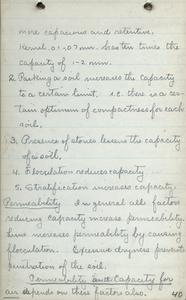 more capacious and retentive.
Kernel .01-.07 mm. has ten times the
capacity of 1-2 mm.
2. Packing a soil increases the capacity
to a certain limit. i.e. there is a cer-
tain optimum of compactness for each
soil.
3. Presence of stones lessens the capacity
of a soil.
4. Flocculation reduces capacity
5. Stratification increases capacity.
Permeability In general all factors
reducing capacity increase permeability.
Lime increases permeability by causing
flocculation. Excessive dryness prevents
penetration of the soil.
Permeability and Capacity for
air depends on these factors also.